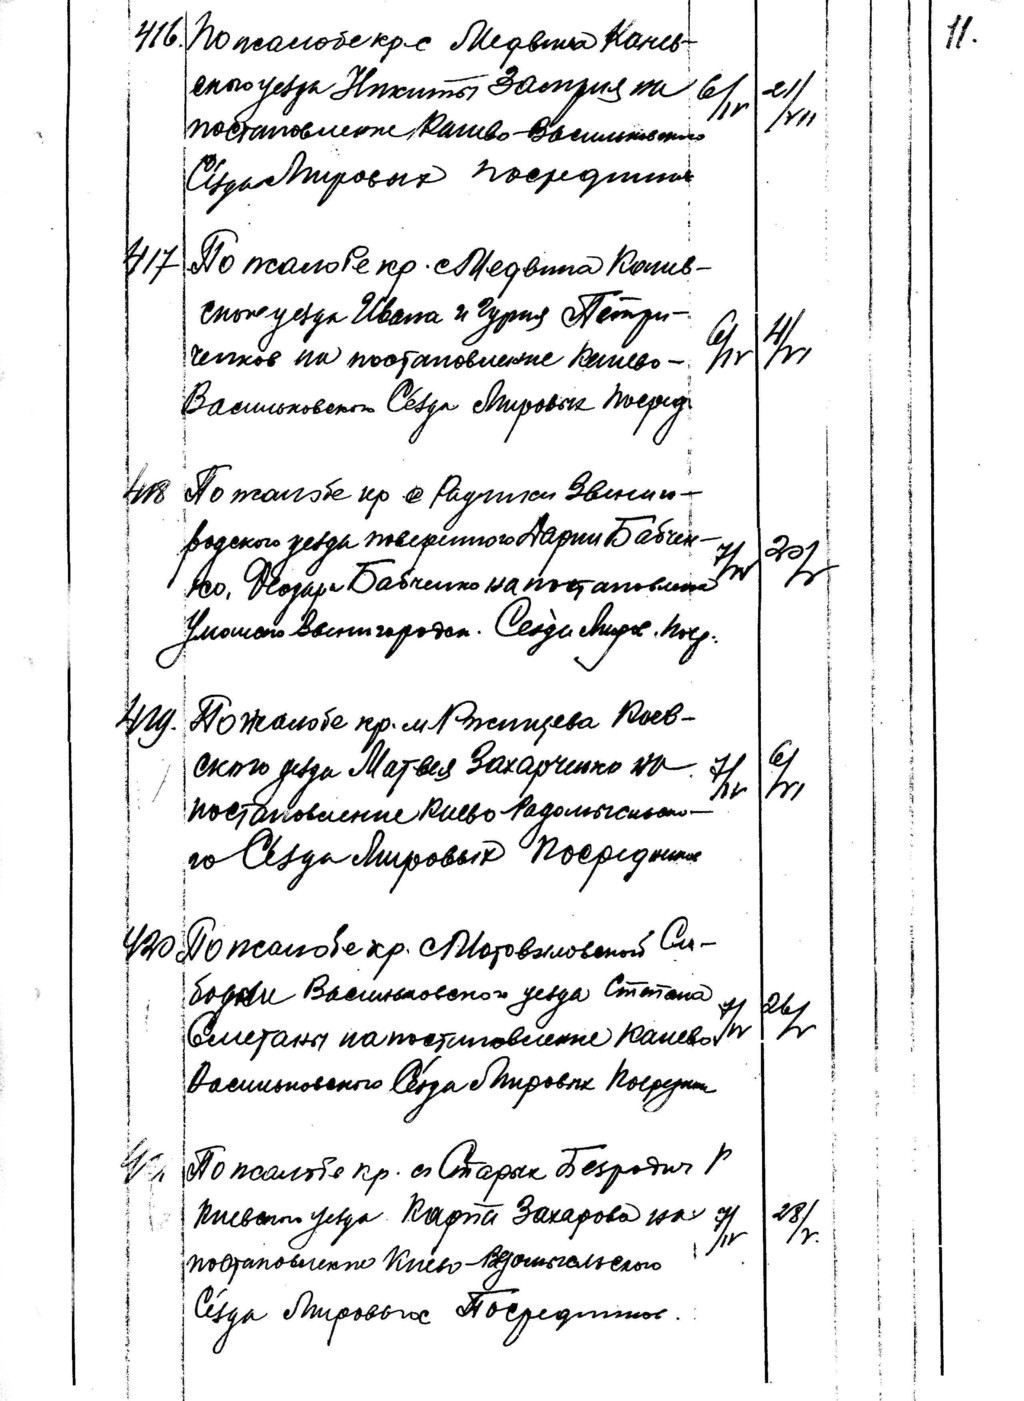 11.
416. По жалобе кр. с Медвина Канев-
ского уезда Никиты Замрия на 6/IV 21/VII
постановление Канево-Васильковского
Сезда Мировых посредников
417 По жалобе кр. с Медвина Канев-
ского уезда Ивана и Гурия Петри-
ченков на постановление Канево- 6/IV 4/VI
Васильковского Сезда Мировых Посред.
418 По жалобе кр с Звениго-
родского уезда поверенного Дарии Бабчен-
ко, Бабченко на постановление 7/IV 20/V
Уманско Звенигородск. Сезда Миров. Поср.
419. По жалобе кр. м Ржищева Киев-
ского уезда Матвея Захарченко на 7/IV 6/VI
постановление Киево-Радомысльско-
го Сезда Мировых Посредников
420 По жалобе кр. с Мотовиловской Сло-
бодки Васильковского уезда Степана
Сметаны на постановление Канево 7/IV 26/V
Васильковского Сезда Мировых Посредник
421 По жалобе кр. с Старых Безродич
Киевского уезда Карпа Захарова на 7/IV 28/V.
постановление Киево-Радомысльского
Сезда Мировых Посредников.